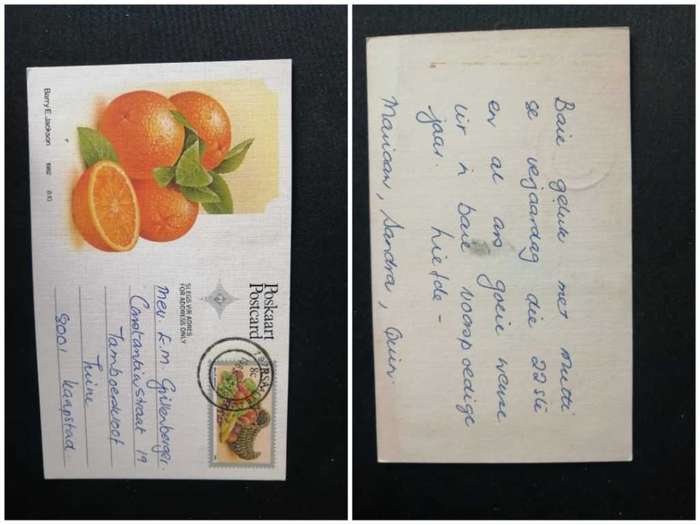 Barry E. Jackson 1982 0.10
Poskaart
Postcard
SLEGS VIR ADRES
FOR ADDRESS ONLY
RSA
8c
Mev. E.M. Gillenberger
Constantiastraat 19
Tamboerskloof
Tuine
8001 Kaapstad
Baie geluk met Mutti
se verjaardag die 22ste
en al ons goeie wense
vir 'n baie voorspoedige
jaar. Liefde -
Marian, Sandra,